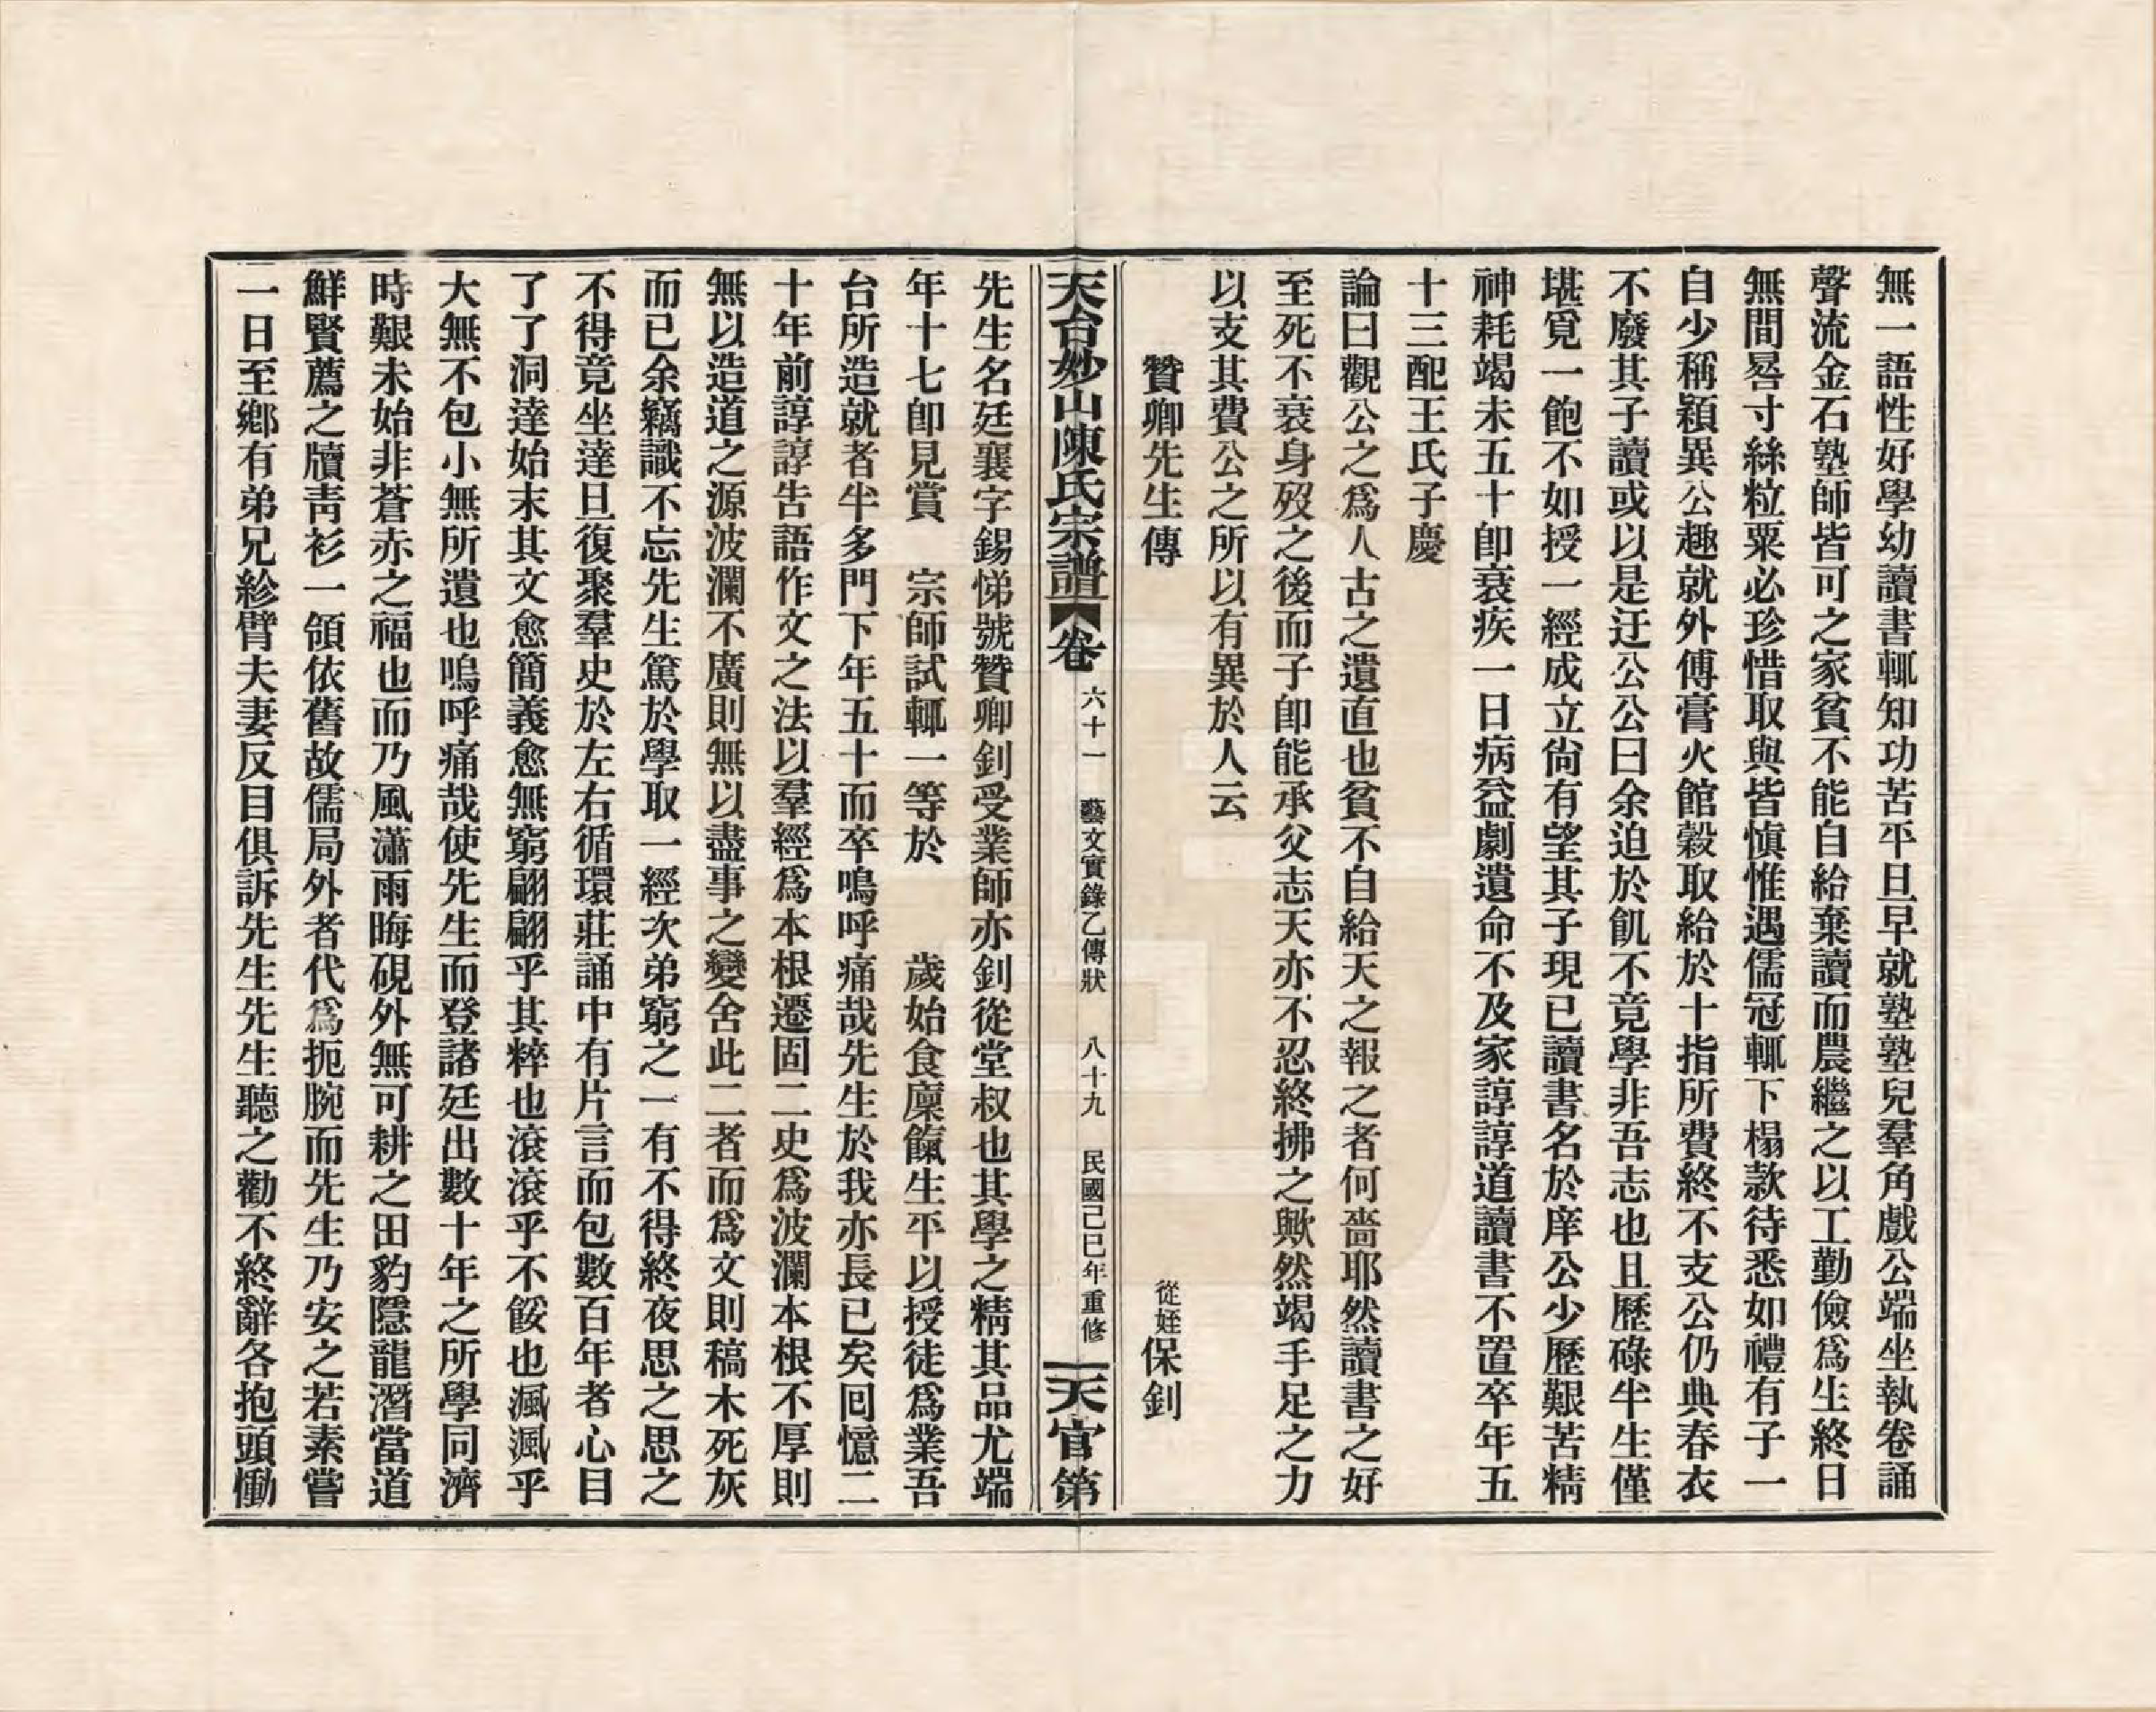 無一語性好學幼讀書輒知功苦平旦早就塾塾兒羣角戲公端坐執卷誦
聲流金石塾師皆可之家貧不能自給棄讀而農繼之以工勤儉爲生終日
無間晷寸絲粒粟必珍惜取與皆愼惟遇儒冠輒下榻款待悉如禮有子一
自少稱穎異公趣就外傅膏火館穀取給於十指所費終不支公仍典春衣
不廢其子讀或以是迂公公曰余迫於飢不竟學非吾志也且歷碌半生僅
堪覓一飽不如授一經成立尙有望其子現已讀書名於庠公少歷艱苦精
神耗竭未五十卽衰疾一日病益劇遺命不及家諄諄道讀書不置卒年五
十三配王氏子慶
論曰觀公之爲人古之遺直也貧不自給天之報之者何嗇耶然讀書之好
至死不衰身歿之後而子卽能承父志天亦不忍終拂之歟然竭手足之力
以支其費公之所以有異於人云
贊卿先生傳　從姪保釗
天台妙山陳氏宗譜　卷六十一　藝文實錄乙傳狀　八十九　民國己巳年重修　天官第
先生名廷襄字錫悌號贊卿釗受業師亦釗從堂叔也其學之精其品尤端
年十七卽見賞　宗師試輒一等於　　歲始食廩餼生平以授徒爲業吾
台所造就者半多門下年五十而卒鳴呼痛哉先生於我亦長已矣回憶二
十年前諄諄告語作文之法以羣經爲本根遷固二史爲波瀾本根不厚則
無以造道之源波瀾不廣則無以盡事之變舍此二者而爲文則稿木死灰
而已余竊識不忘先生篤於學取一經次弟窮之一有不得終夜思之思之
不得竟坐達旦復聚羣史於左右循環莊誦中有片言而包數百年者心目
了了洞達始末其文愈簡義愈無窮翩翩乎其粹也滾滾乎不餒也渢渢乎
大無不包小無所遺也嗚呼痛哉使先生而登諸廷出數十年之所學同濟
時艱未始非蒼赤之福也而乃風瀟雨晦硯外無可耕之田豹隱龍潛當道
鮮賢薦之牘靑衫一領依舊故儒局外者代爲扼腕而先生乃安之若素嘗
一日至鄉有弟兄紾臂夫妻反目俱訴先生先生聽之勸不終辭各抱頭慟